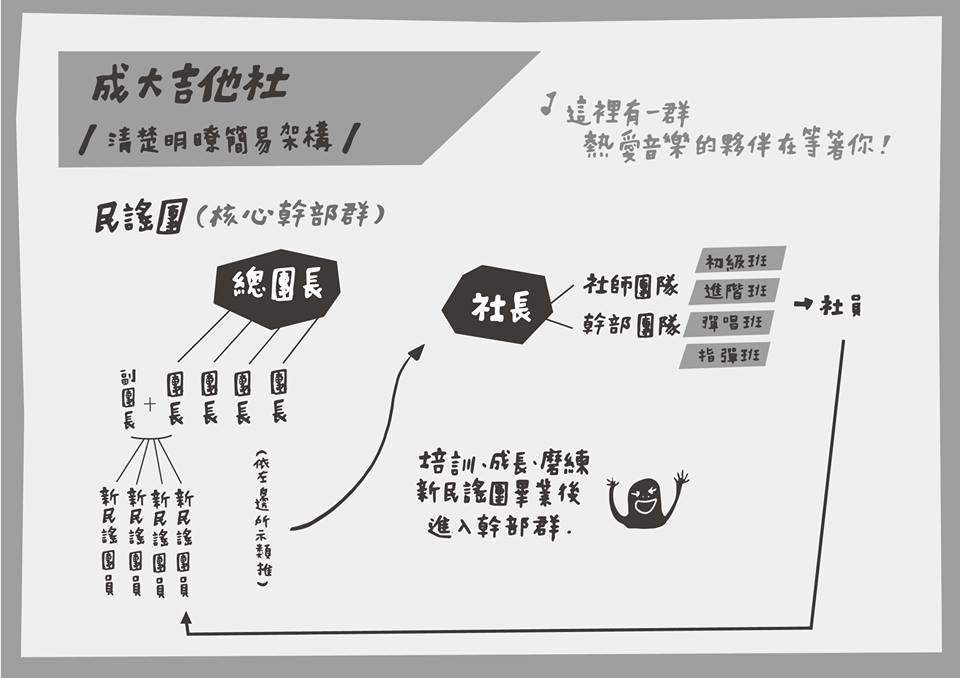 成大吉他社
/ 清楚明瞭簡易架構 /
♪ 這裡有一群
熱愛音樂的夥伴在等著你!
民謠團(核心幹部群)
總團長
副團長
+
團長
團長
團長
團長
新民謠團員
新民謠團員
新民謠團員
新民謠團員
(依左邊所示類推)
社長
社師團隊
幹部團隊
初級班
進階班
彈唱班
指彈班
→社員
培訓、成長、磨練
新民謠團畢業後
進入幹部群.